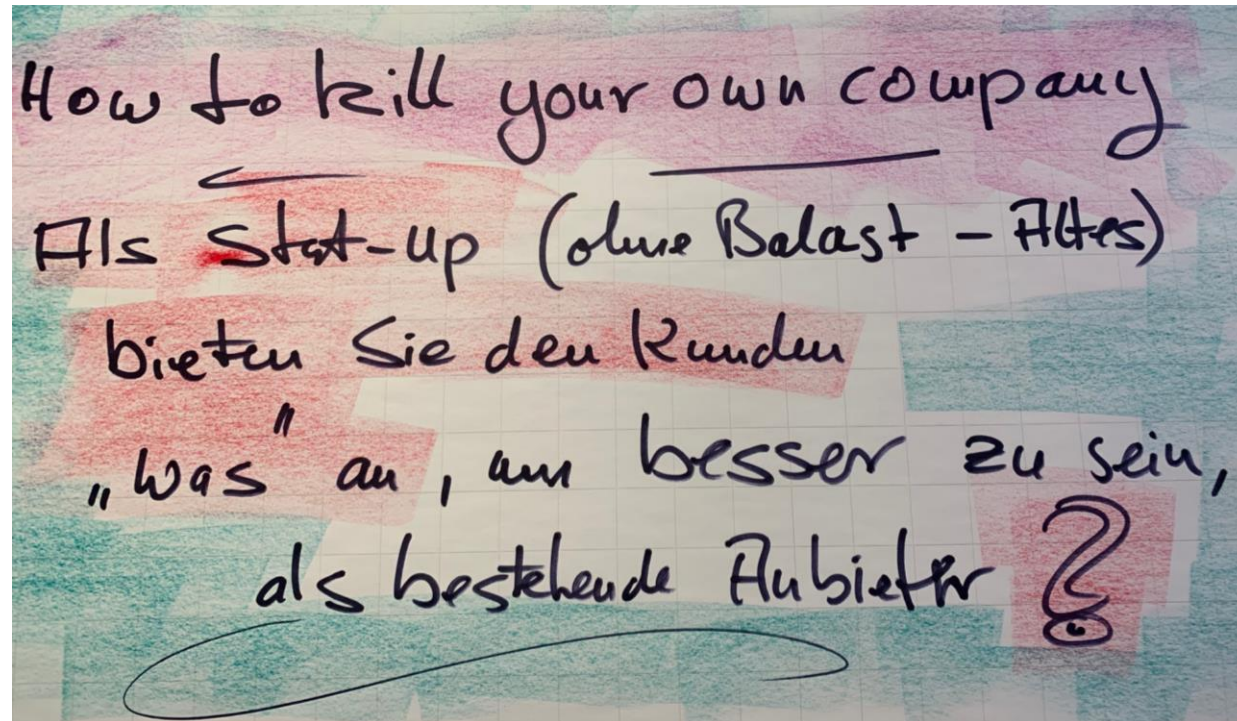 How to kill your own company
Als Stat-up (ohne Balast - Altes)
bieten Sie den Kunden
„Was" an, um besser zu sein,
als bestehende Anbieter?